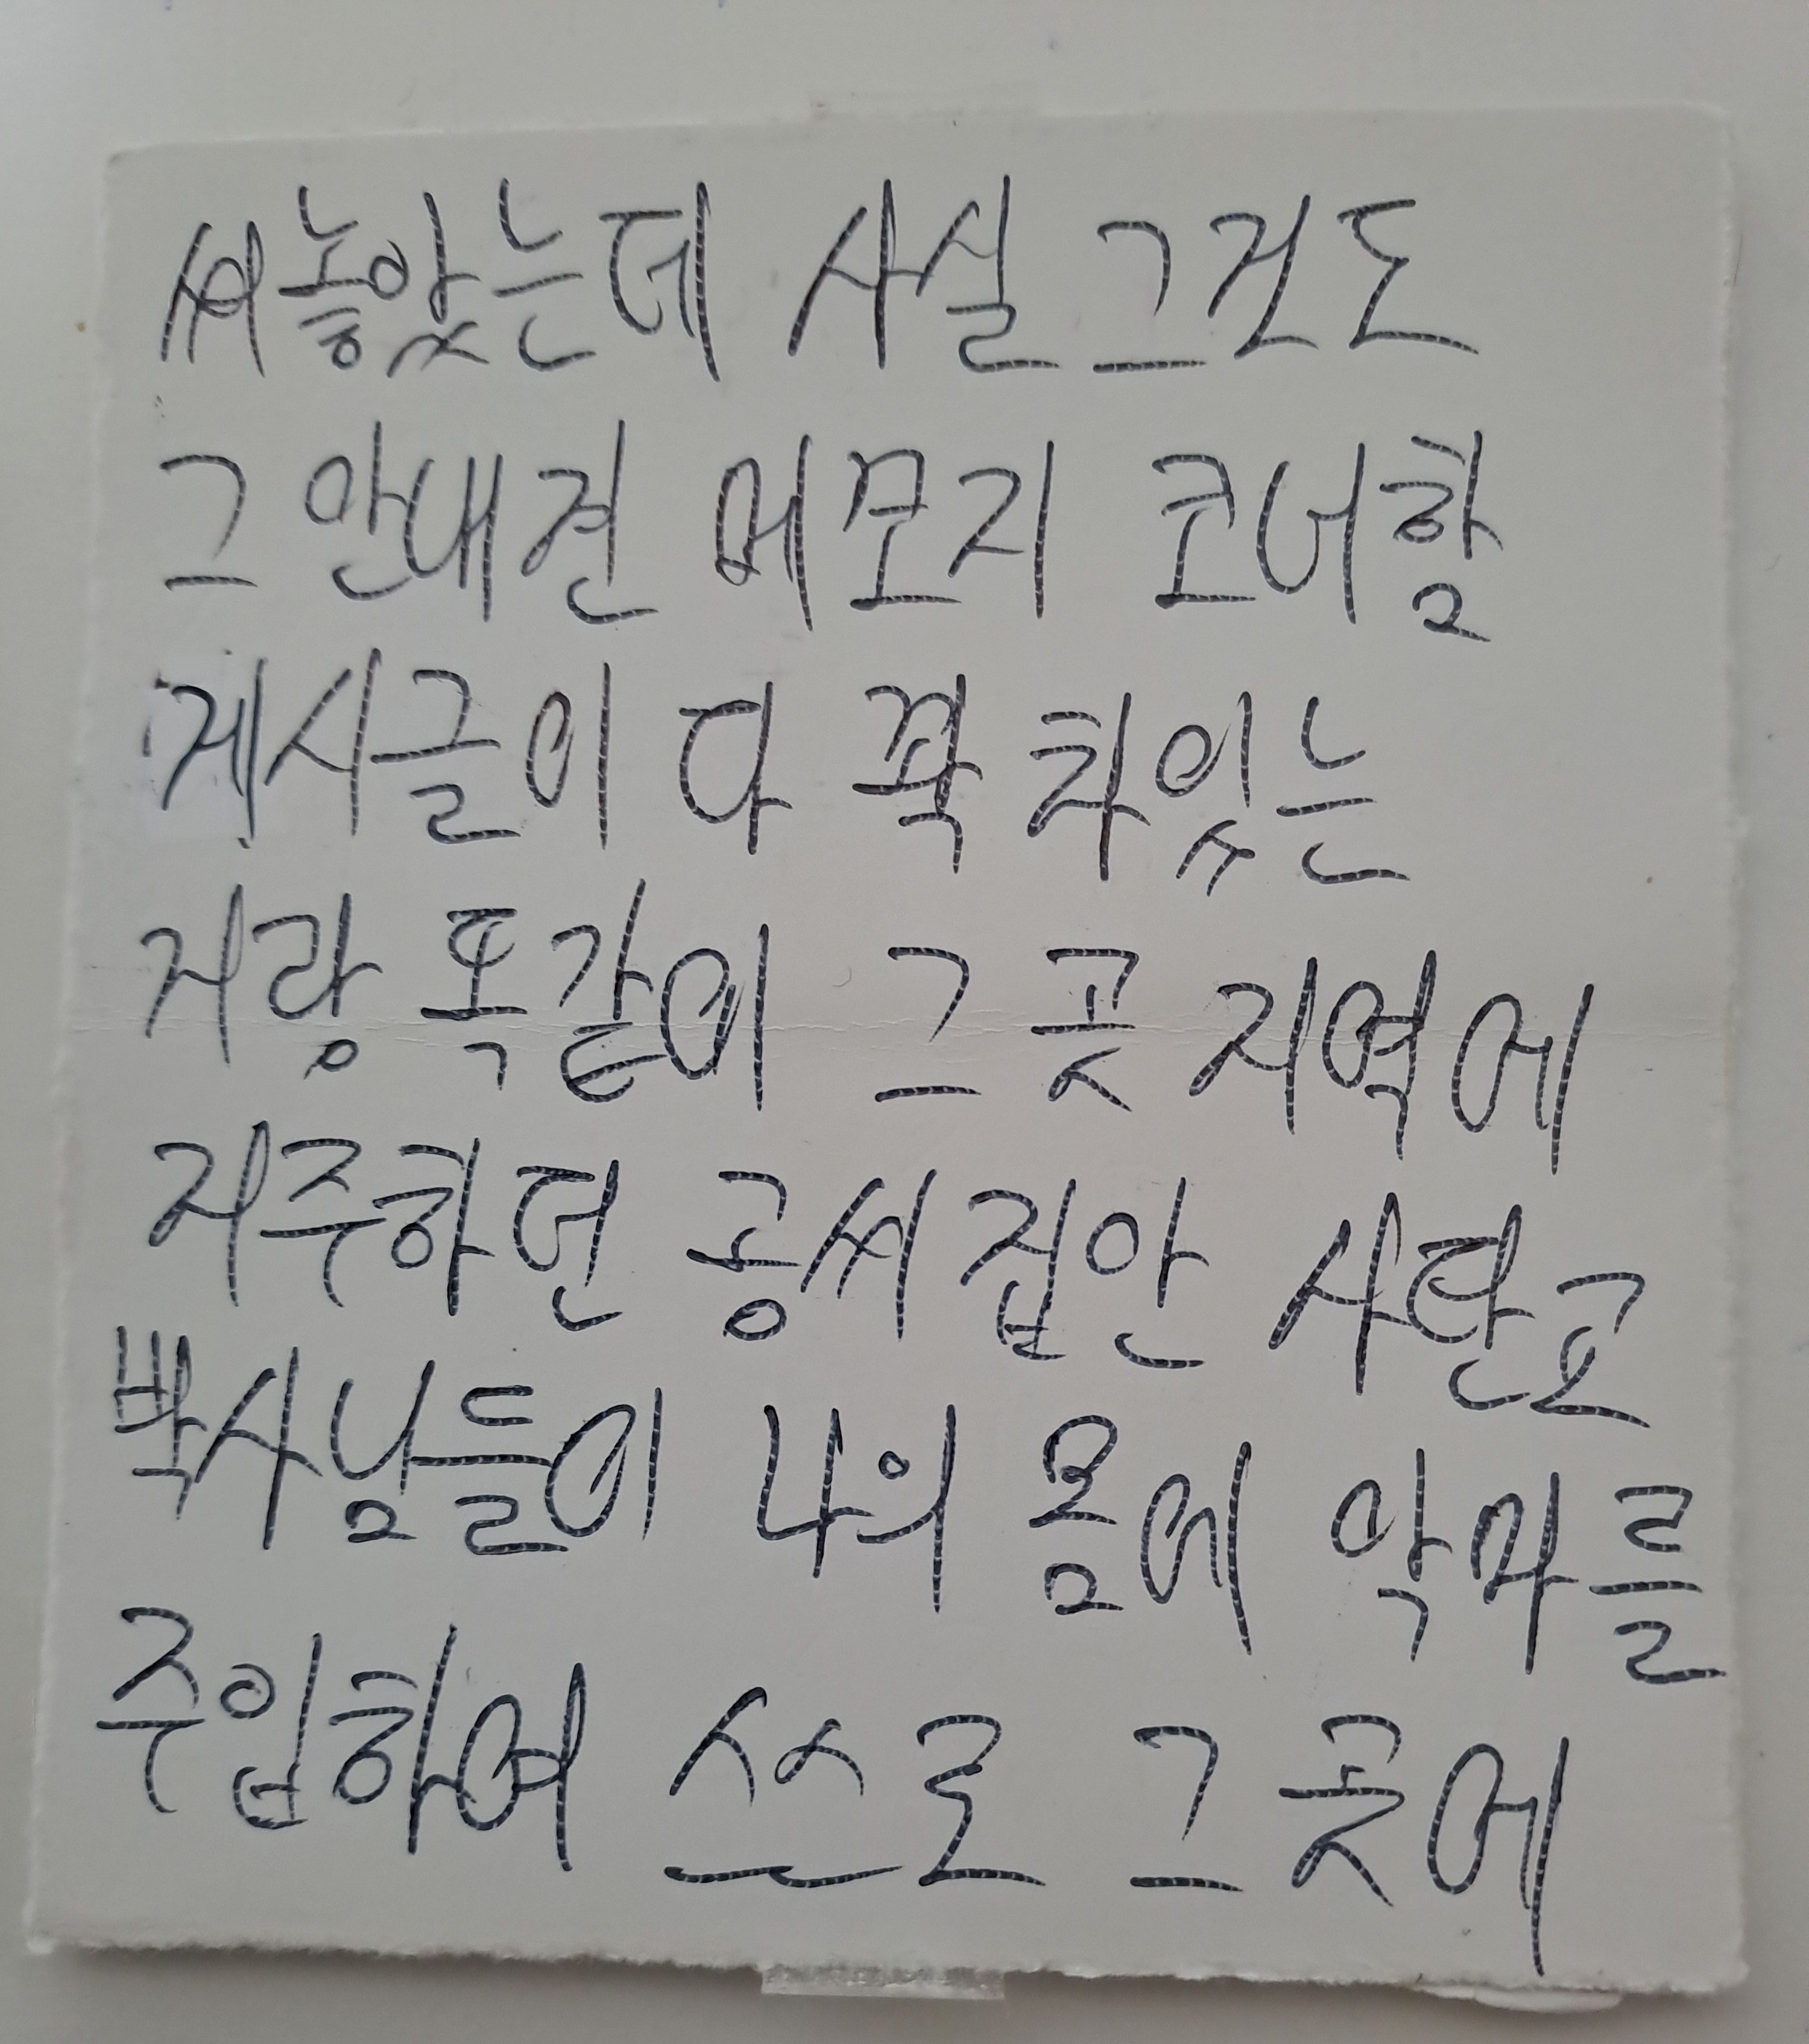 써놓았는데 사실 그것도
그 안내견 메모지 코너함
게시글이 다 꽉 차있는
거랑 똑같이 그 곳 지역에
거주하던 공씨 집안 사람고
박사님들이 나의 몸에 악마를
주입하여 스스로 그 곳에